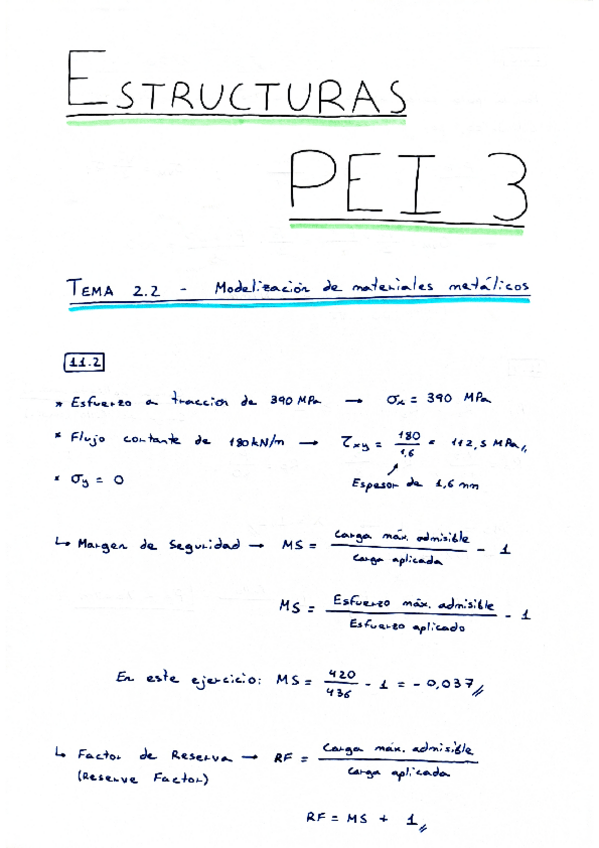 ESTRUCTURAS
PEI 3
TEMA 2.2 - Modelización de materiales metálicos
11.2
* Esfuerzo a tracción de 390 MPa → σx = 390 MPa
* Flujo cortante de 180kN/m → τxy = 180/1,6 = 112,5 MPa,,
* σy = 0
Espesor de 1,6 mm
↳ Margen de Seguridad → MS = Carga máx. admisible / Carga aplicada - 1
MS = Esfuerzo máx. admisible / Esfuerzo aplicado - 1
En este ejercicio: MS = 420/436 - 1 = - 0,037//
↳ Factor de Reserva → RF = Carga máx. admisible / Carga aplicada
(Reserve Factor)
RF = MS + 1,,